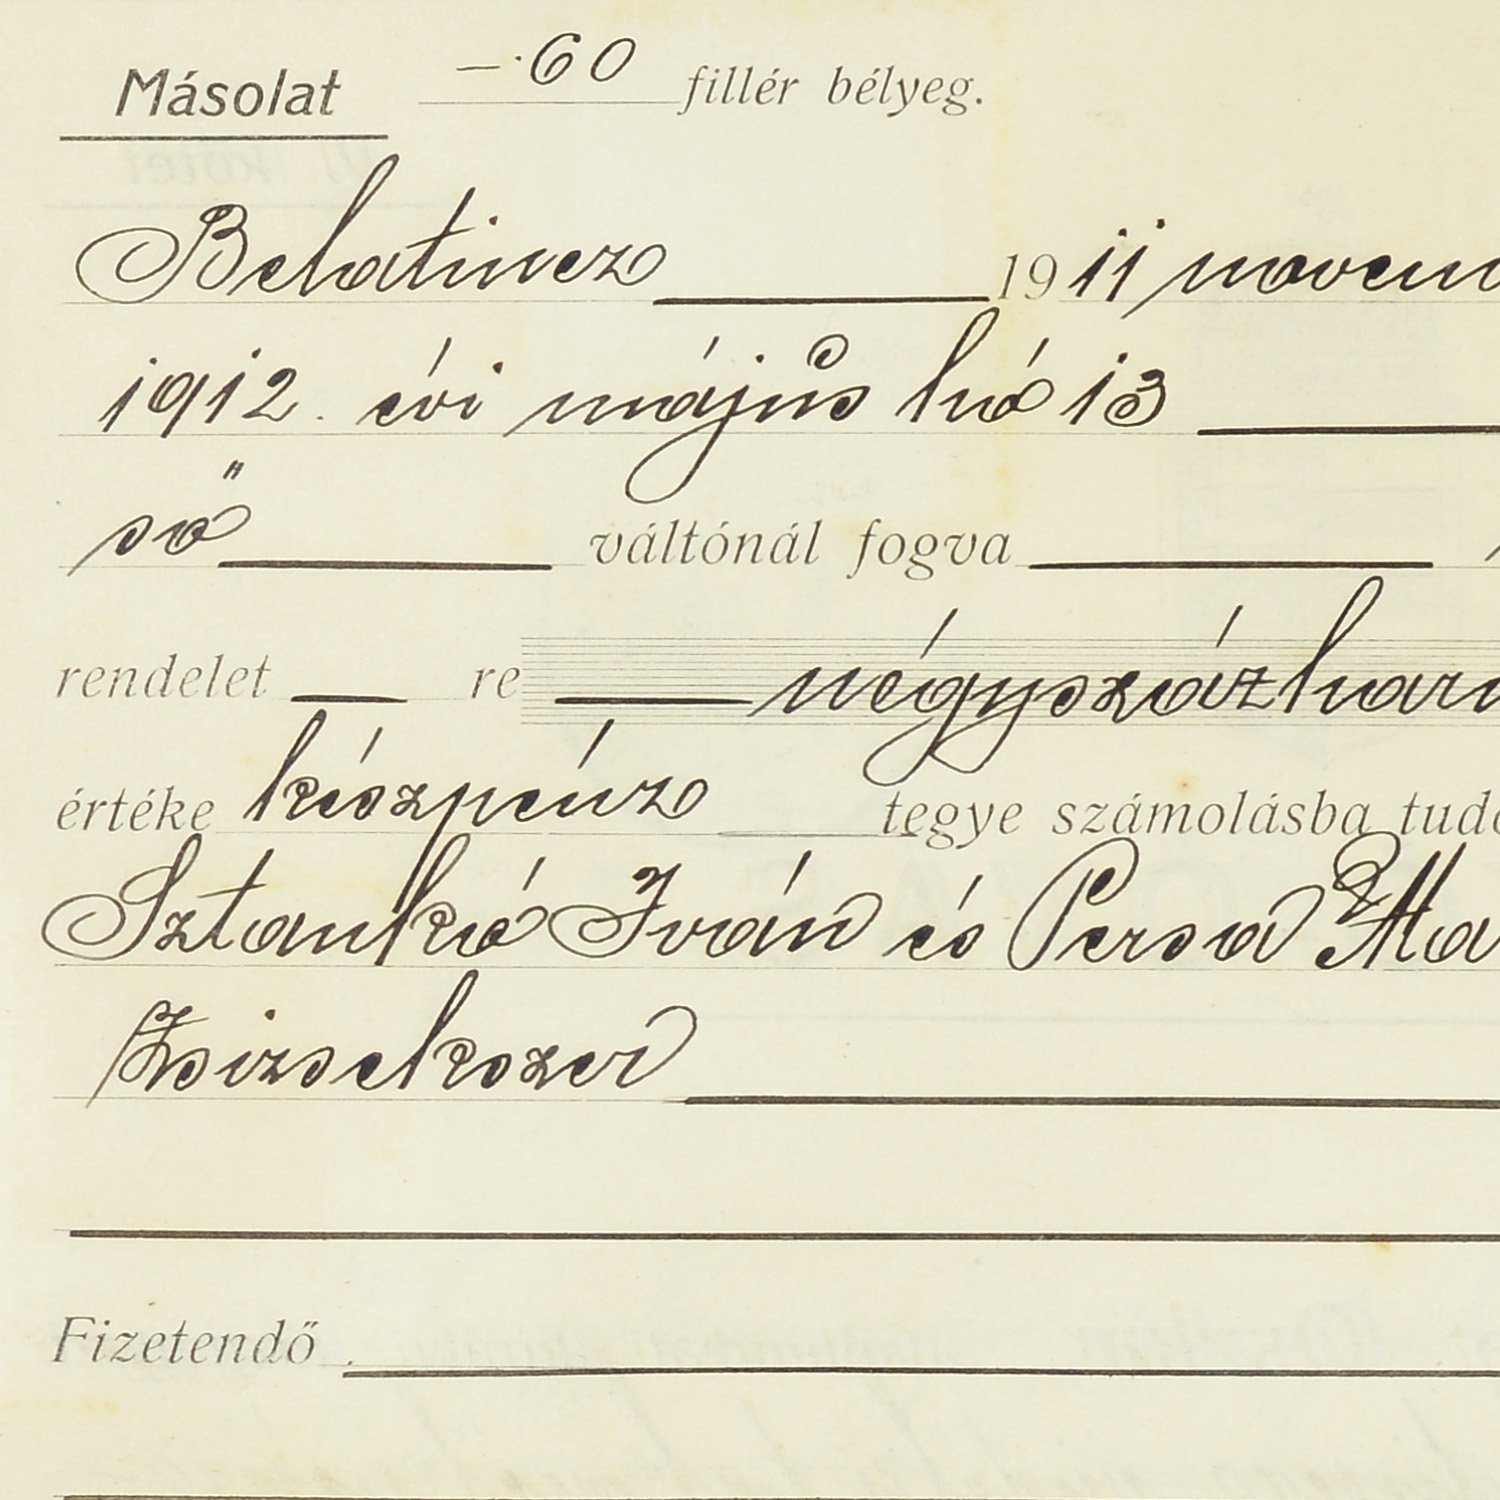 Másolat -.60 fillér bélyeg.
Belatincz 1911 novem
1912. évi május hó 13
ső váltónál fogva
rendelet re négyszázhar
értéke készpénz tegye számolásba tud
Sztankó Iván és Persa Ma
Zsizsekszer
Fizetendő